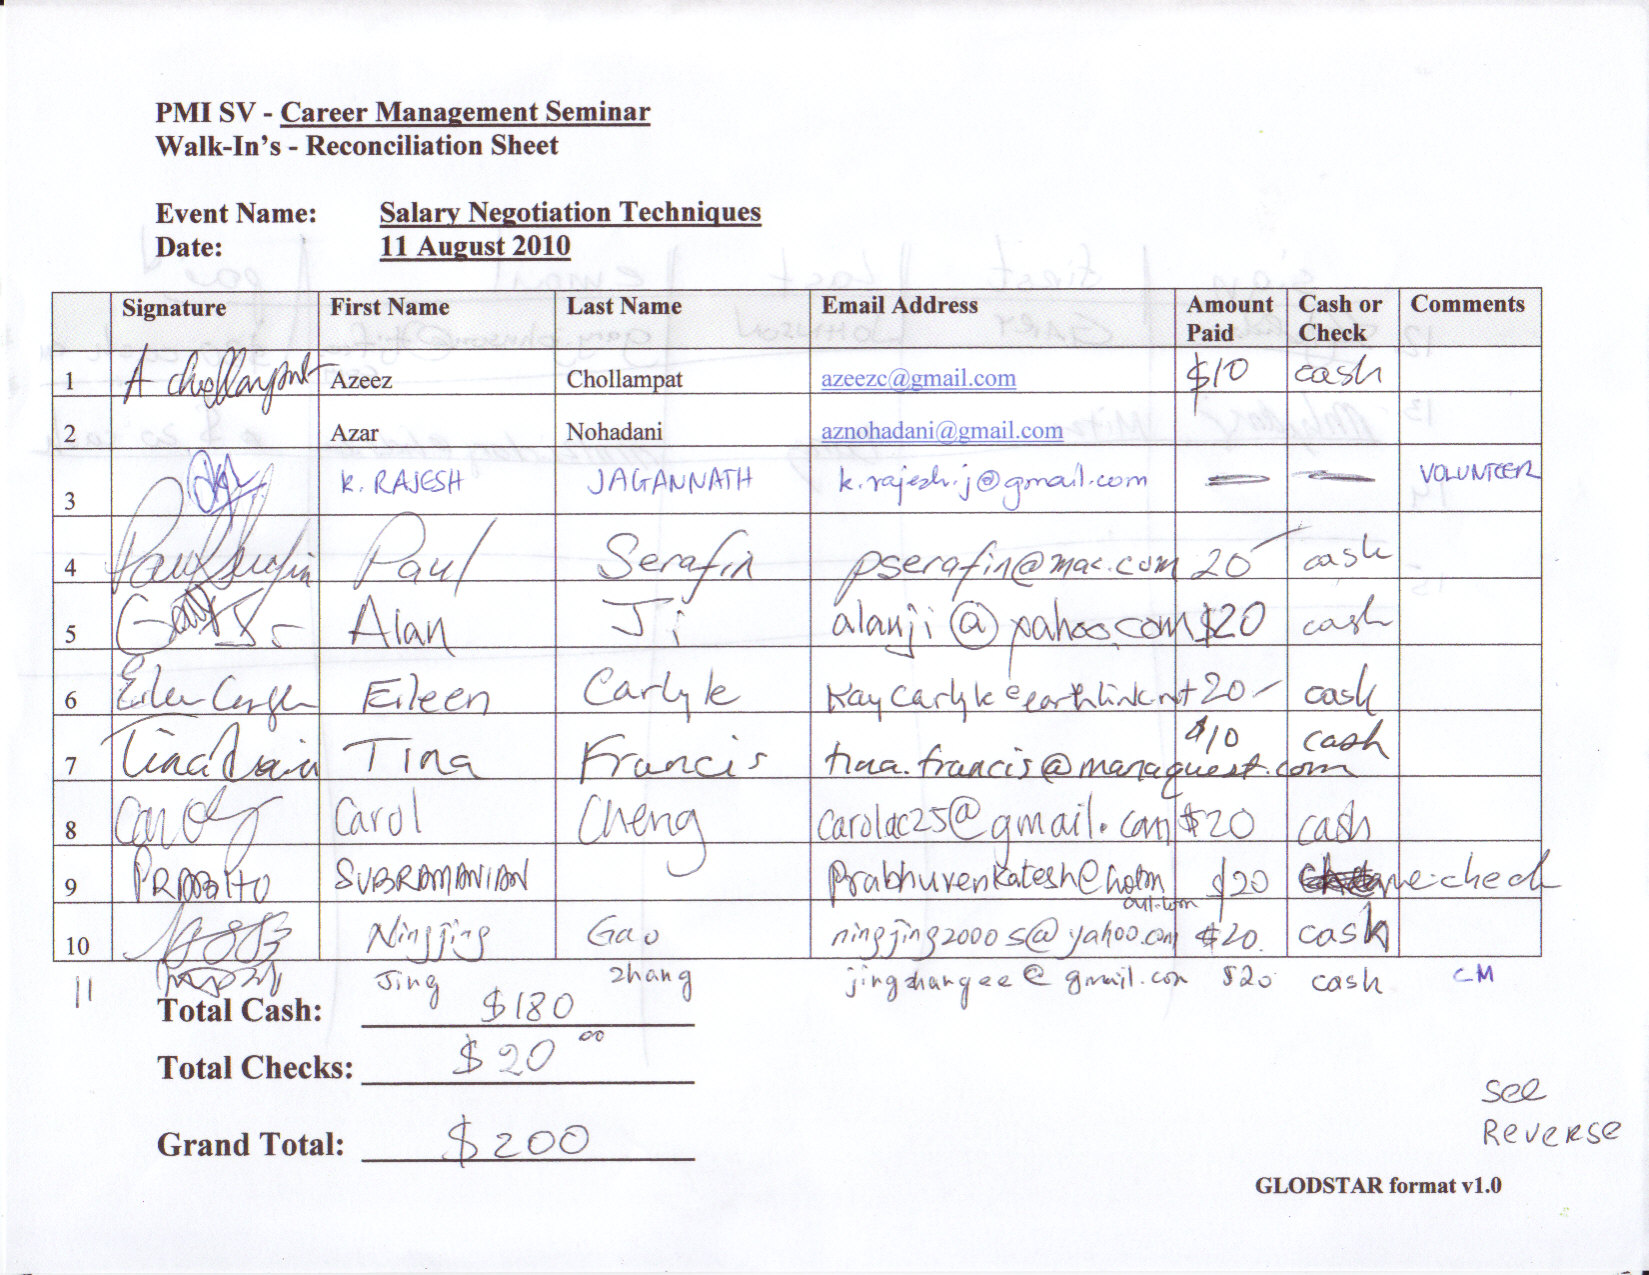 PMI SV - Career Management Seminar
Walk-In's - Reconciliation Sheet
Event Name: Salary Negotiation Techniques
Date: 11 August 2010
Signature First Name Last Name Email Address Amount Paid Cash or Check Comments
1 A Chollampat Azeez Chollampat azeezc@gmail.com $10 cash
2 Azar Nohadani aznohadani@gmail.com
3 K. RAJESH JAGANNATH k.rajesh.j@gmail.com — — VOLUNTEER
4 Paul Serafin Paul Serafin pserafin@mac.com 20 cash
5 Alan Ji alanji@yahoo.com $20 cash
6 Eileen Carlyle Eileen Carlyle Kaycarlyle@earthlink.net 20- cash
7 Tina Francis Tina Francis tina.francis@manaquest.com $10 cash
8 Carol Carol Cheng carolac25@gmail.com $20 cash
9 PRABHU SUBRAMANIAN Prabhuvenkatesh@hotm $20 check
10 Ningjing Gao ningjing2000s@yahoo.com $20. cash
11 Jing Zhang jingzhangee@gmail.com $20 cash CM
Total Cash: $180
Total Checks: $20 00
Grand Total: $200
See
Reverse
GLODSTAR format v1.0